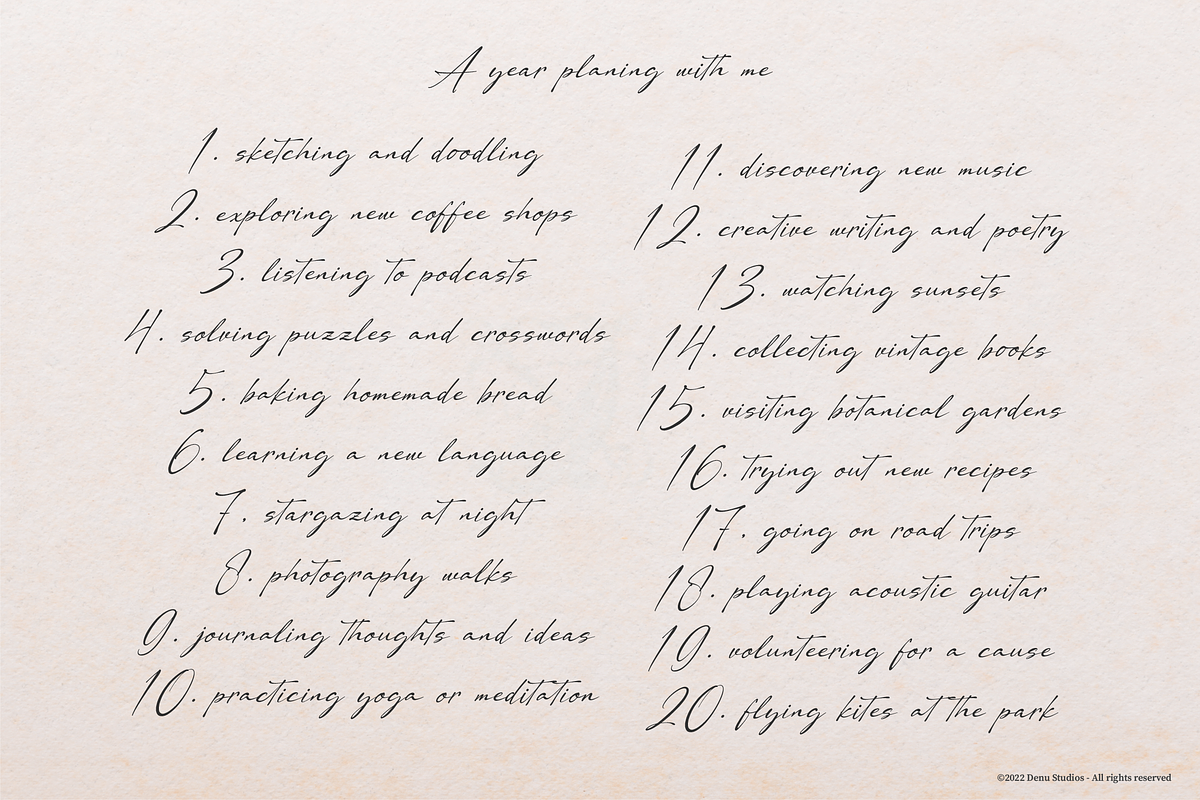 A year planing with me
1. sketching and doodling
2. exploring new coffee shops
3. listening to podcasts
4. solving puzzles and crosswords
5. baking homemade bread
6. learning a new language
7. stargazing at night
8. photography walks
9. journaling thoughts and ideas
10. practicing yoga or meditation
11. discovering new music
12. creative writing and poetry
13. watching sunsets
14. collecting vintage books
15. visiting botanical gardens
16. trying out new recipes
17. going on road trips
18. playing acoustic guitar
19. volunteering for a cause
20. flying kites at the park
©2022 Denu Studios - All rights reserved